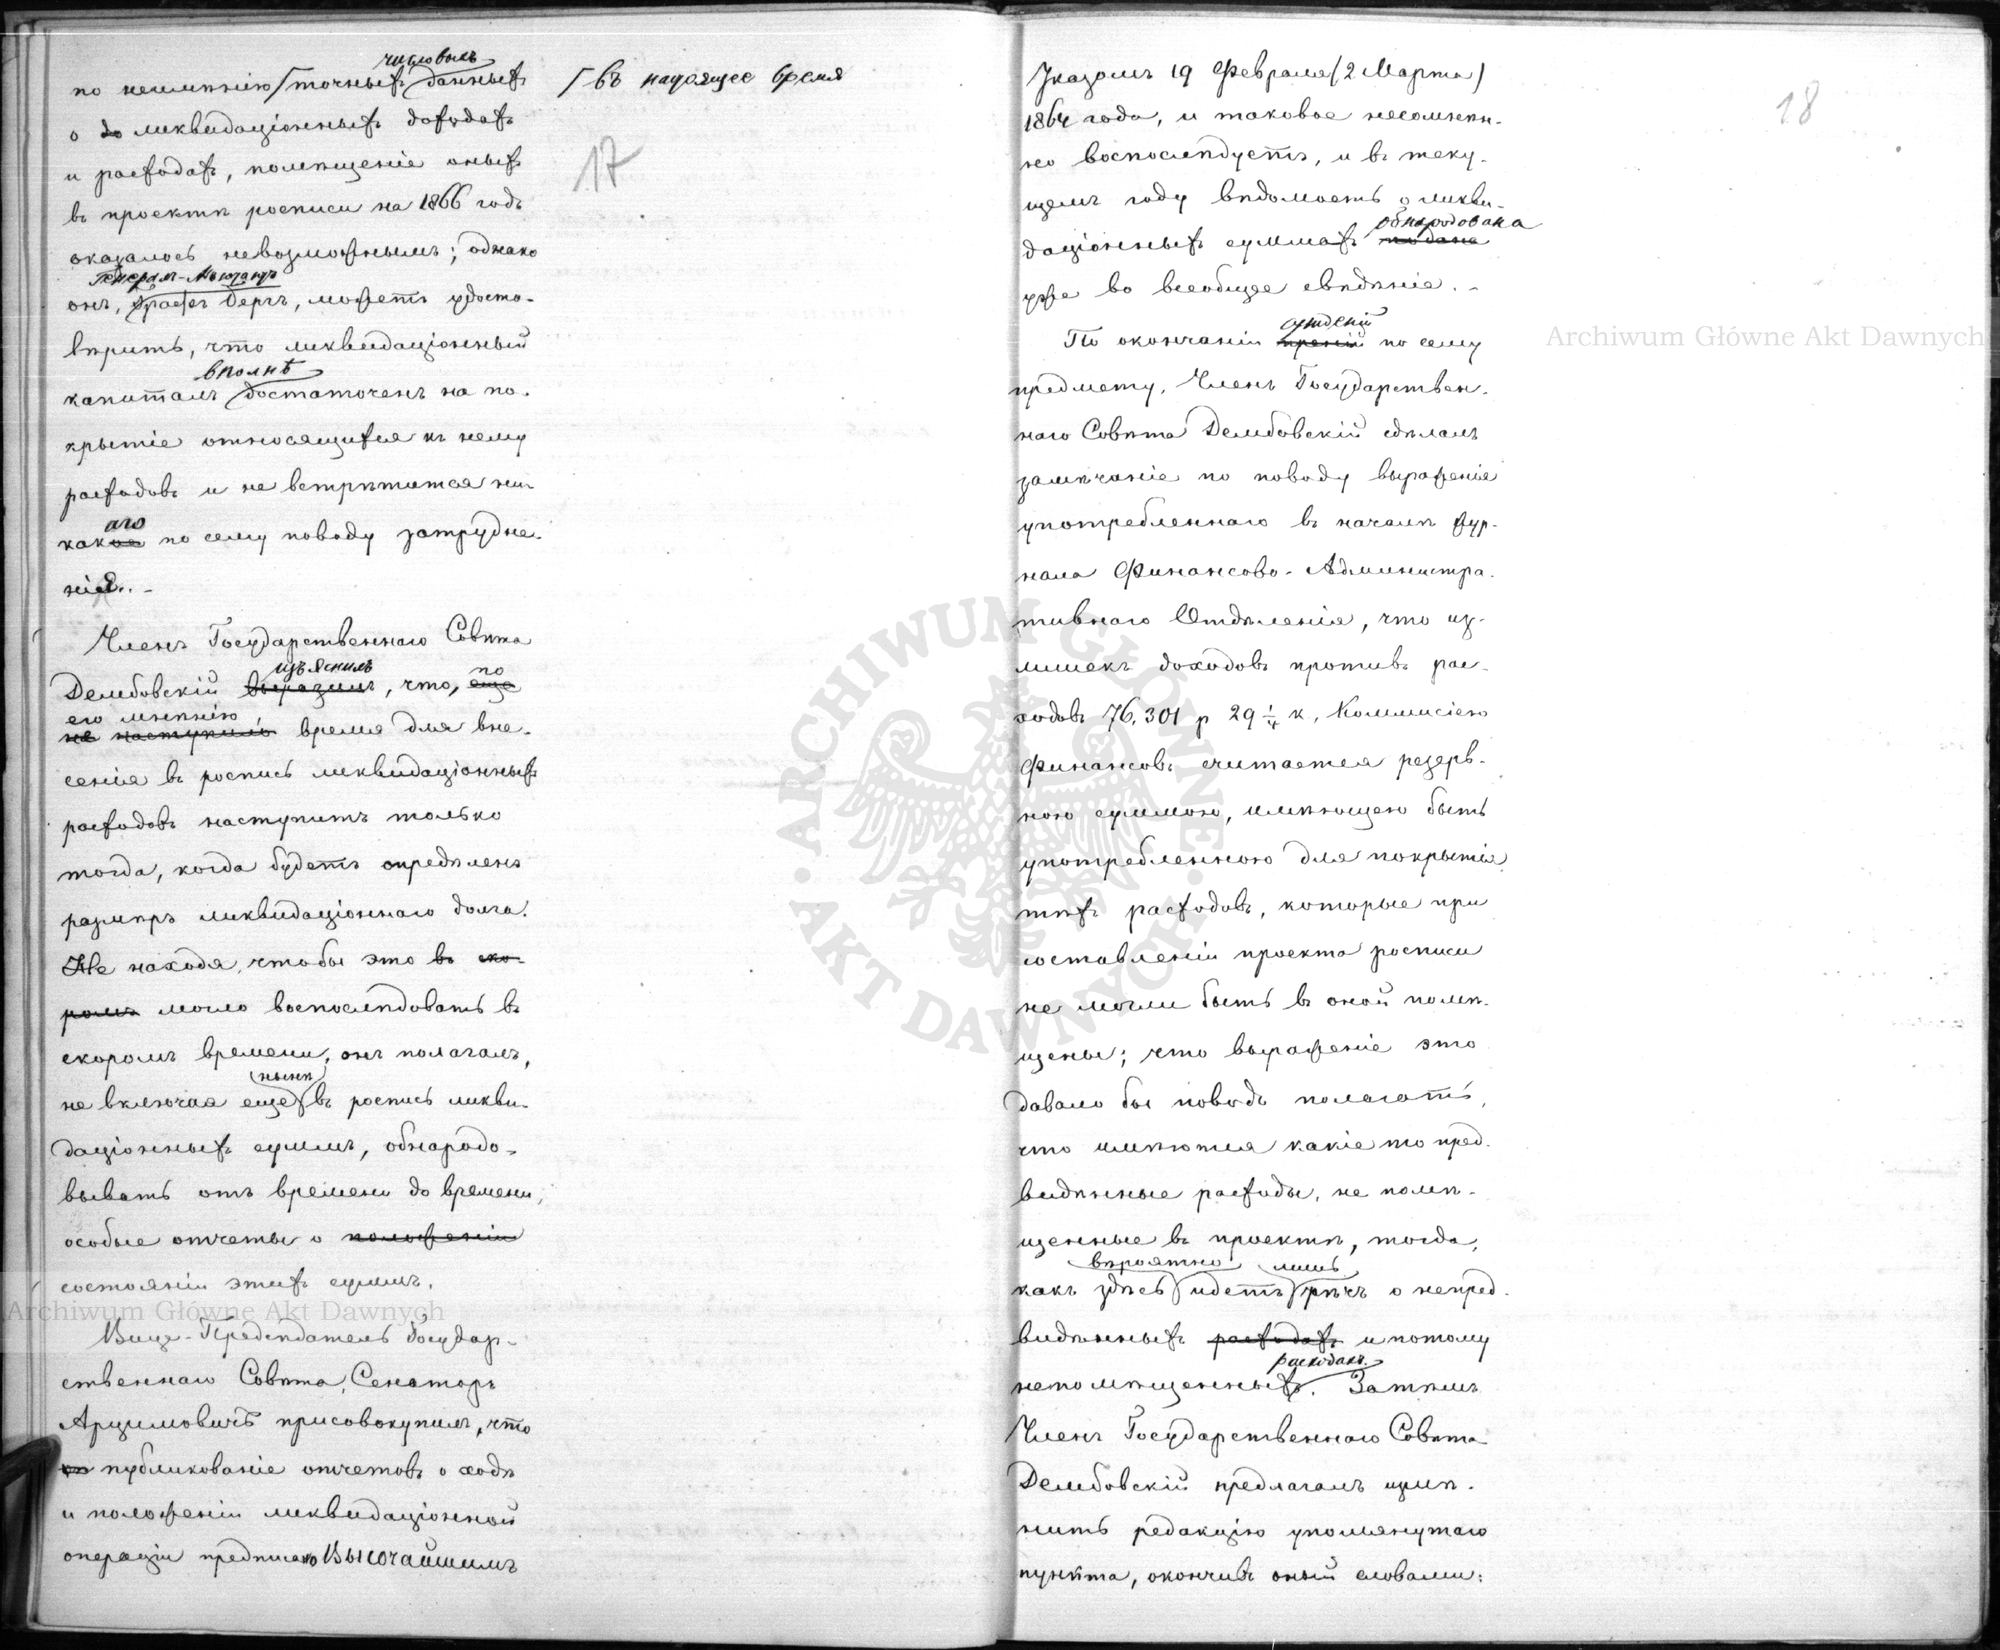 числовыхъ
по неимѣнію точныхъ данныхъ
въ настоящее время
о до ликвидаціонныхъ доходахъ
17
и расходахъ, помѣщеніе оныхъ
въ проектѣ росписи на 1866 годъ
оказалось невозможнымъ; однако
Генералъ-Адъютантъ
онъ, Графъ Бергъ, можетъ удосто-
вѣрить, что ликвидаціонный
вполнѣ
капиталъ достаточенъ на по-
крытіе относящихся къ нему
расходовъ и не встрѣтится ни-
аго
какое по сему поводу затрудне-
нія.
Членъ Государственнаго Совѣта
изъяснилъ по
Дембовскій выразилъ, что, еще
его мнѣнію,
не наступило время для вне-
сенія въ роспись ликвидаціонныхъ
расходовъ наступитъ только
тогда, когда будетъ опредѣленъ
размѣръ ликвидаціоннаго долга.
Не находя, чтобы это въ ско-
ромъ могло воспослѣдовать въ
скоромъ времени, онъ полагалъ,
нынѣ
не включая еще въ роспись ликви-
даціонныхъ суммъ, обнародо-
вывать отъ времени до времени,
особые отчеты о положеніи
состояніи этихъ суммъ.
Вице-Предсѣдатель Государ-
ственнаго Совѣта, Сенаторъ
Арцимовичъ присовокупилъ, что
публикованіе отчетовъ о ходѣ
и положеніи ликвидаціонной
операціи предписано Высочайшимъ
Указомъ 19 Февраля (2 Марта)
18
1864 года, и таковое несомнѣн-
но воспослѣдуетъ, и въ теку-
щемъ году вѣдомость о ликви-
обнародована
даціонныхъ суммахъ подана
уже во всеобщее свѣдѣніе. -
сужденій
По окончаніи преній по сему
предмету, Членъ Государствен-
наго Совѣта Дембовскій сдѣлалъ
замѣчаніе по поводу выраженія
употребленнаго въ началѣ жур-
нала Финансово-Администра-
тивнаго Отдѣленія, что из-
лишекъ доходовъ противъ рас-
ходовъ 76,301 р 29 1/4 к, Коммисіею
Финансовъ считается резерв-
ною суммою, имѣющею быть
употребленною для покрытія
тѣхъ расходовъ, которые при
составленіи проекта росписи
не могли быть въ оной помѣ-
щены; что выраженіе это
давало бы поводъ полагать,
что имѣются какіе то пред-
видѣнные расходы, не помѣ-
щенные въ проектѣ, тогда,
вѣроятно лишь
какъ здѣсь идетъ рѣчь о непред-
видѣнныхъ расходахъ и потому
расходахъ.
непомѣщенныхъ. Затѣмъ
Членъ Государственнаго Совѣта
Дембовскій предлагалъ измѣ-
нить редакцію упомянутаго
пункта, окончивъ оный словами:
Archiwum Główne Akt Dawnych
Archiwum Główne Akt Dawnych
ARCHIWUM GŁÓWNE
AKT DAWNYCH